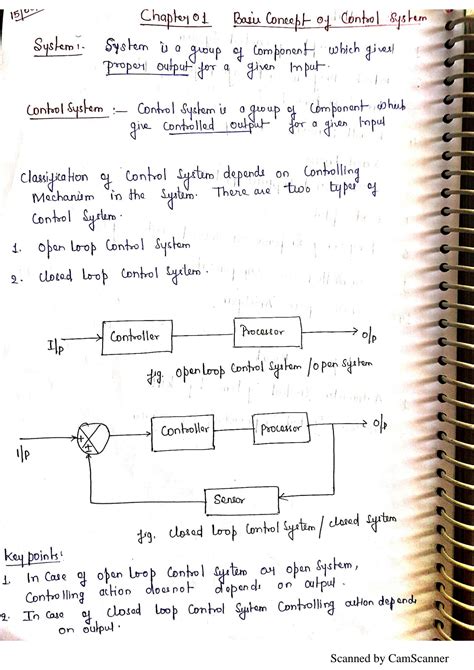 15/
Chapter 01 Basic Concept of Control System
System :- System is a group of Component, which gives
proper output for a given Input.
Control System :- Control System is a group of Component which
give Controlled output for a given Input
Classification of Control System depends on Controlling
Mechanism in the System. There are two types of
Control System.
1. Open Loop Control System
2. Closed Loop Control System.
I/p Controller Processor O/p
fig. open loop Control System / open System
I/p + ± Controller Processor O/p
Sensor
fig. Closed Loop Control System / closed System
Key points:
1. In Case of open Loop Control System or open System,
Controlling action doesnot depends on output.
2. In Case of Closed Loop Control System Controlling action depends
on output.
Scanned by CamScanner